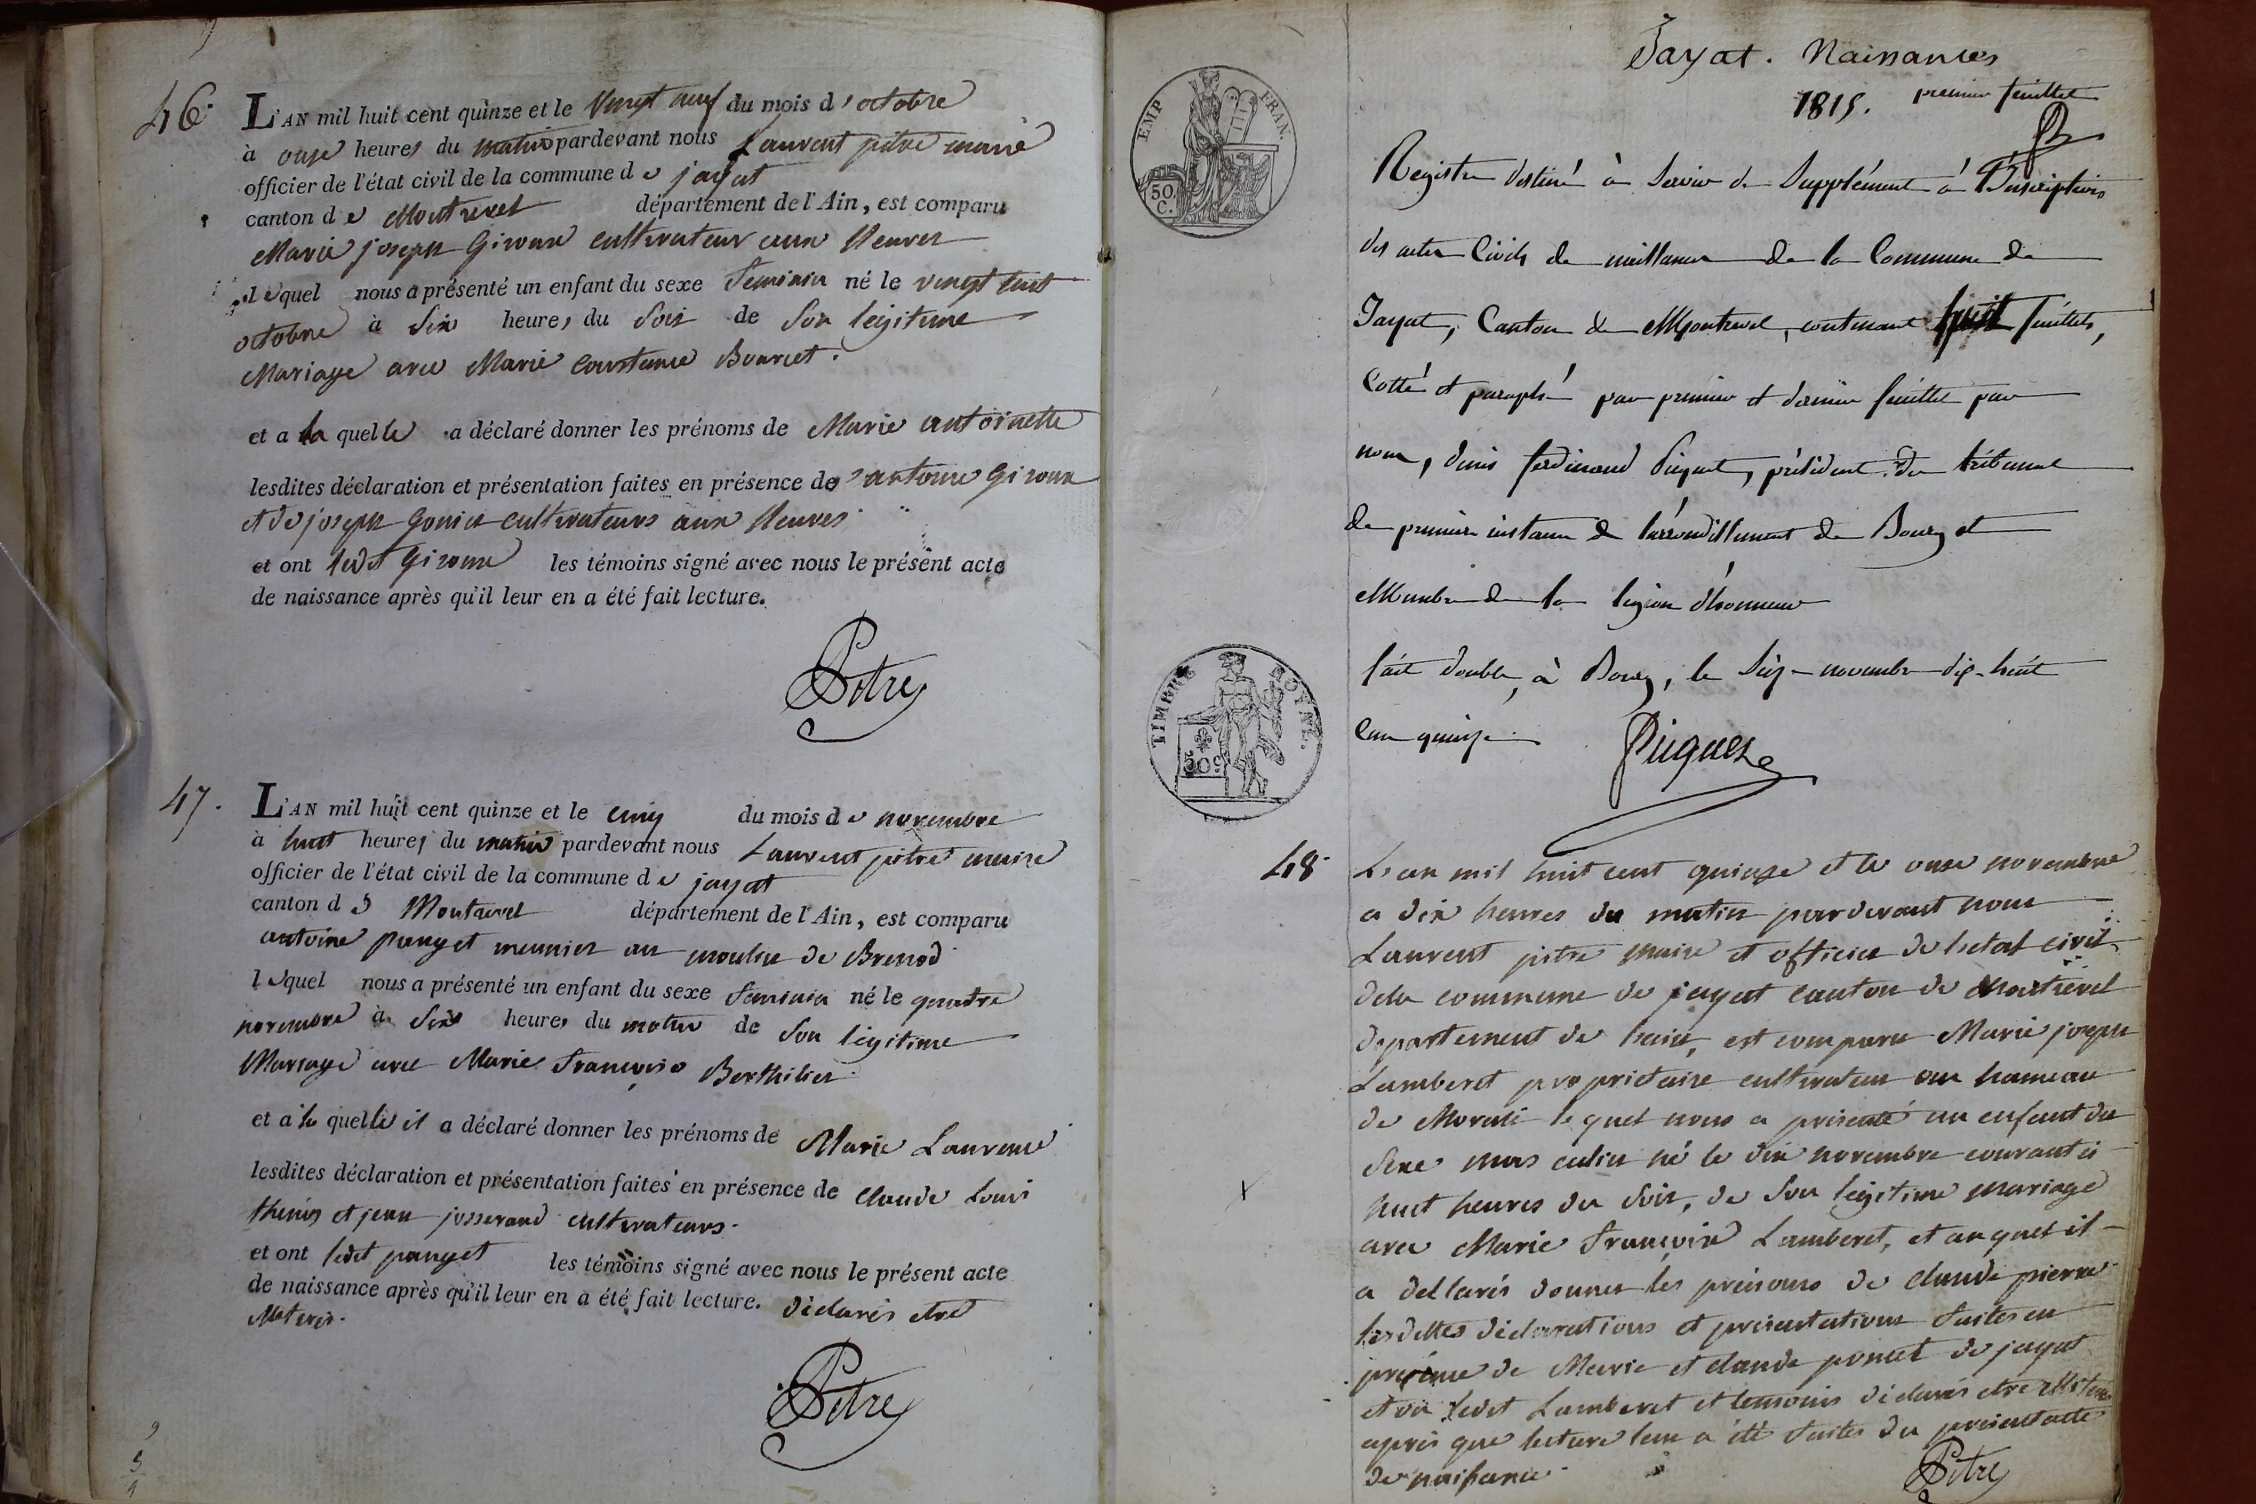 46.
L'AN mil huit cent quinze et le vingt neuf du mois d'octobre
à onze heures du matin pardevant nous Laurent pitre maire
officier de l'état civil de la commune de jayat
canton de Montrevel département de l'Ain, est comparu
Marie joseph Giroux cultivateur aux
lequel nous a présenté un enfant du sexe feminin né le vingt huit
octobre à six heures du soir de son legitime
Mariage avec Marie Constance Bourcet.
et a la quelle a déclaré donner les prénoms de Marie antoinette
lesdites déclaration et présentation faites en présence de antoine Giroux
et de joseph cultivateurs aux
et ont ledit Giroux les témoins signé avec nous le présent acte
de naissance après qu'il leur en a été fait lecture.
Pitre
47.
L'AN mil huit cent quinze et le cinq du mois de novembre
à huit heures du matin pardevant nous Laurent pitre maire
officier de l'état civil de la commune de jayat
canton de Montrevel département de l'Ain, est comparu
antoine panget meunier au moulin de
lequel nous a présenté un enfant du sexe feminin né le quatre
novembre à six heures du matin de son légitime
Mariage avec Marie françoise Berthilier
et a la quelle il a déclaré donner les prénoms de Marie Laurence
lesdites déclaration et présentation faites en présence de claude Louis
et jean josserand cultivateurs.
et ont ledit panget les témoins signé avec nous le présent acte
de naissance après qu'il leur en a été fait lecture. déclarés etre
illeterés.
Pitre
Jayat. Naissances
1815. premier feuillet
EMP FRAN.
50 C.
Registre destiné à servir de Supplément à l'Inscriptions
des actes Civils de naissance de la Commune de
Jayat, Canton de Montrevel, contenant huit feuillets,
Cotté et paraphé par premier et dernier feuillet par
nous, Denis ferdinand Piquet, président du tribunal
de premiere instance de l'arrondissement de Bourg et
Membre de la légion d'honneur
fait double, à Bourg, le Six novembre dix-huit
Cent quinze.
Piquet
TIMBRE ROYAL.
50 c
48.
L'an mil huit cent quinze et le onze novembre
a dix heures du matin pardevant nous
Laurent pitre maire et officier de letat civil
dela commune de jayat canton de Montrevel
departement de lain, est comparu Marie joseph
Lamberet proprietaire cultivateur au hameau
de lequel nous a présenté un enfant du
sexe masculin né le dix novembre courant a
huit heures du soir, de son legitime mariage
avec Marie françoise Lamberet, et auquel il
a dellarés donner les prénoms de claude pierre
lesdittes déclarations et présentations faites en
présence de Marie et claude poncet de jayat
et ont ledit Lamberet et temoins déclarés etre illeteres
après que lecture leur a été faites du présent acte
de naissance.
Pitre